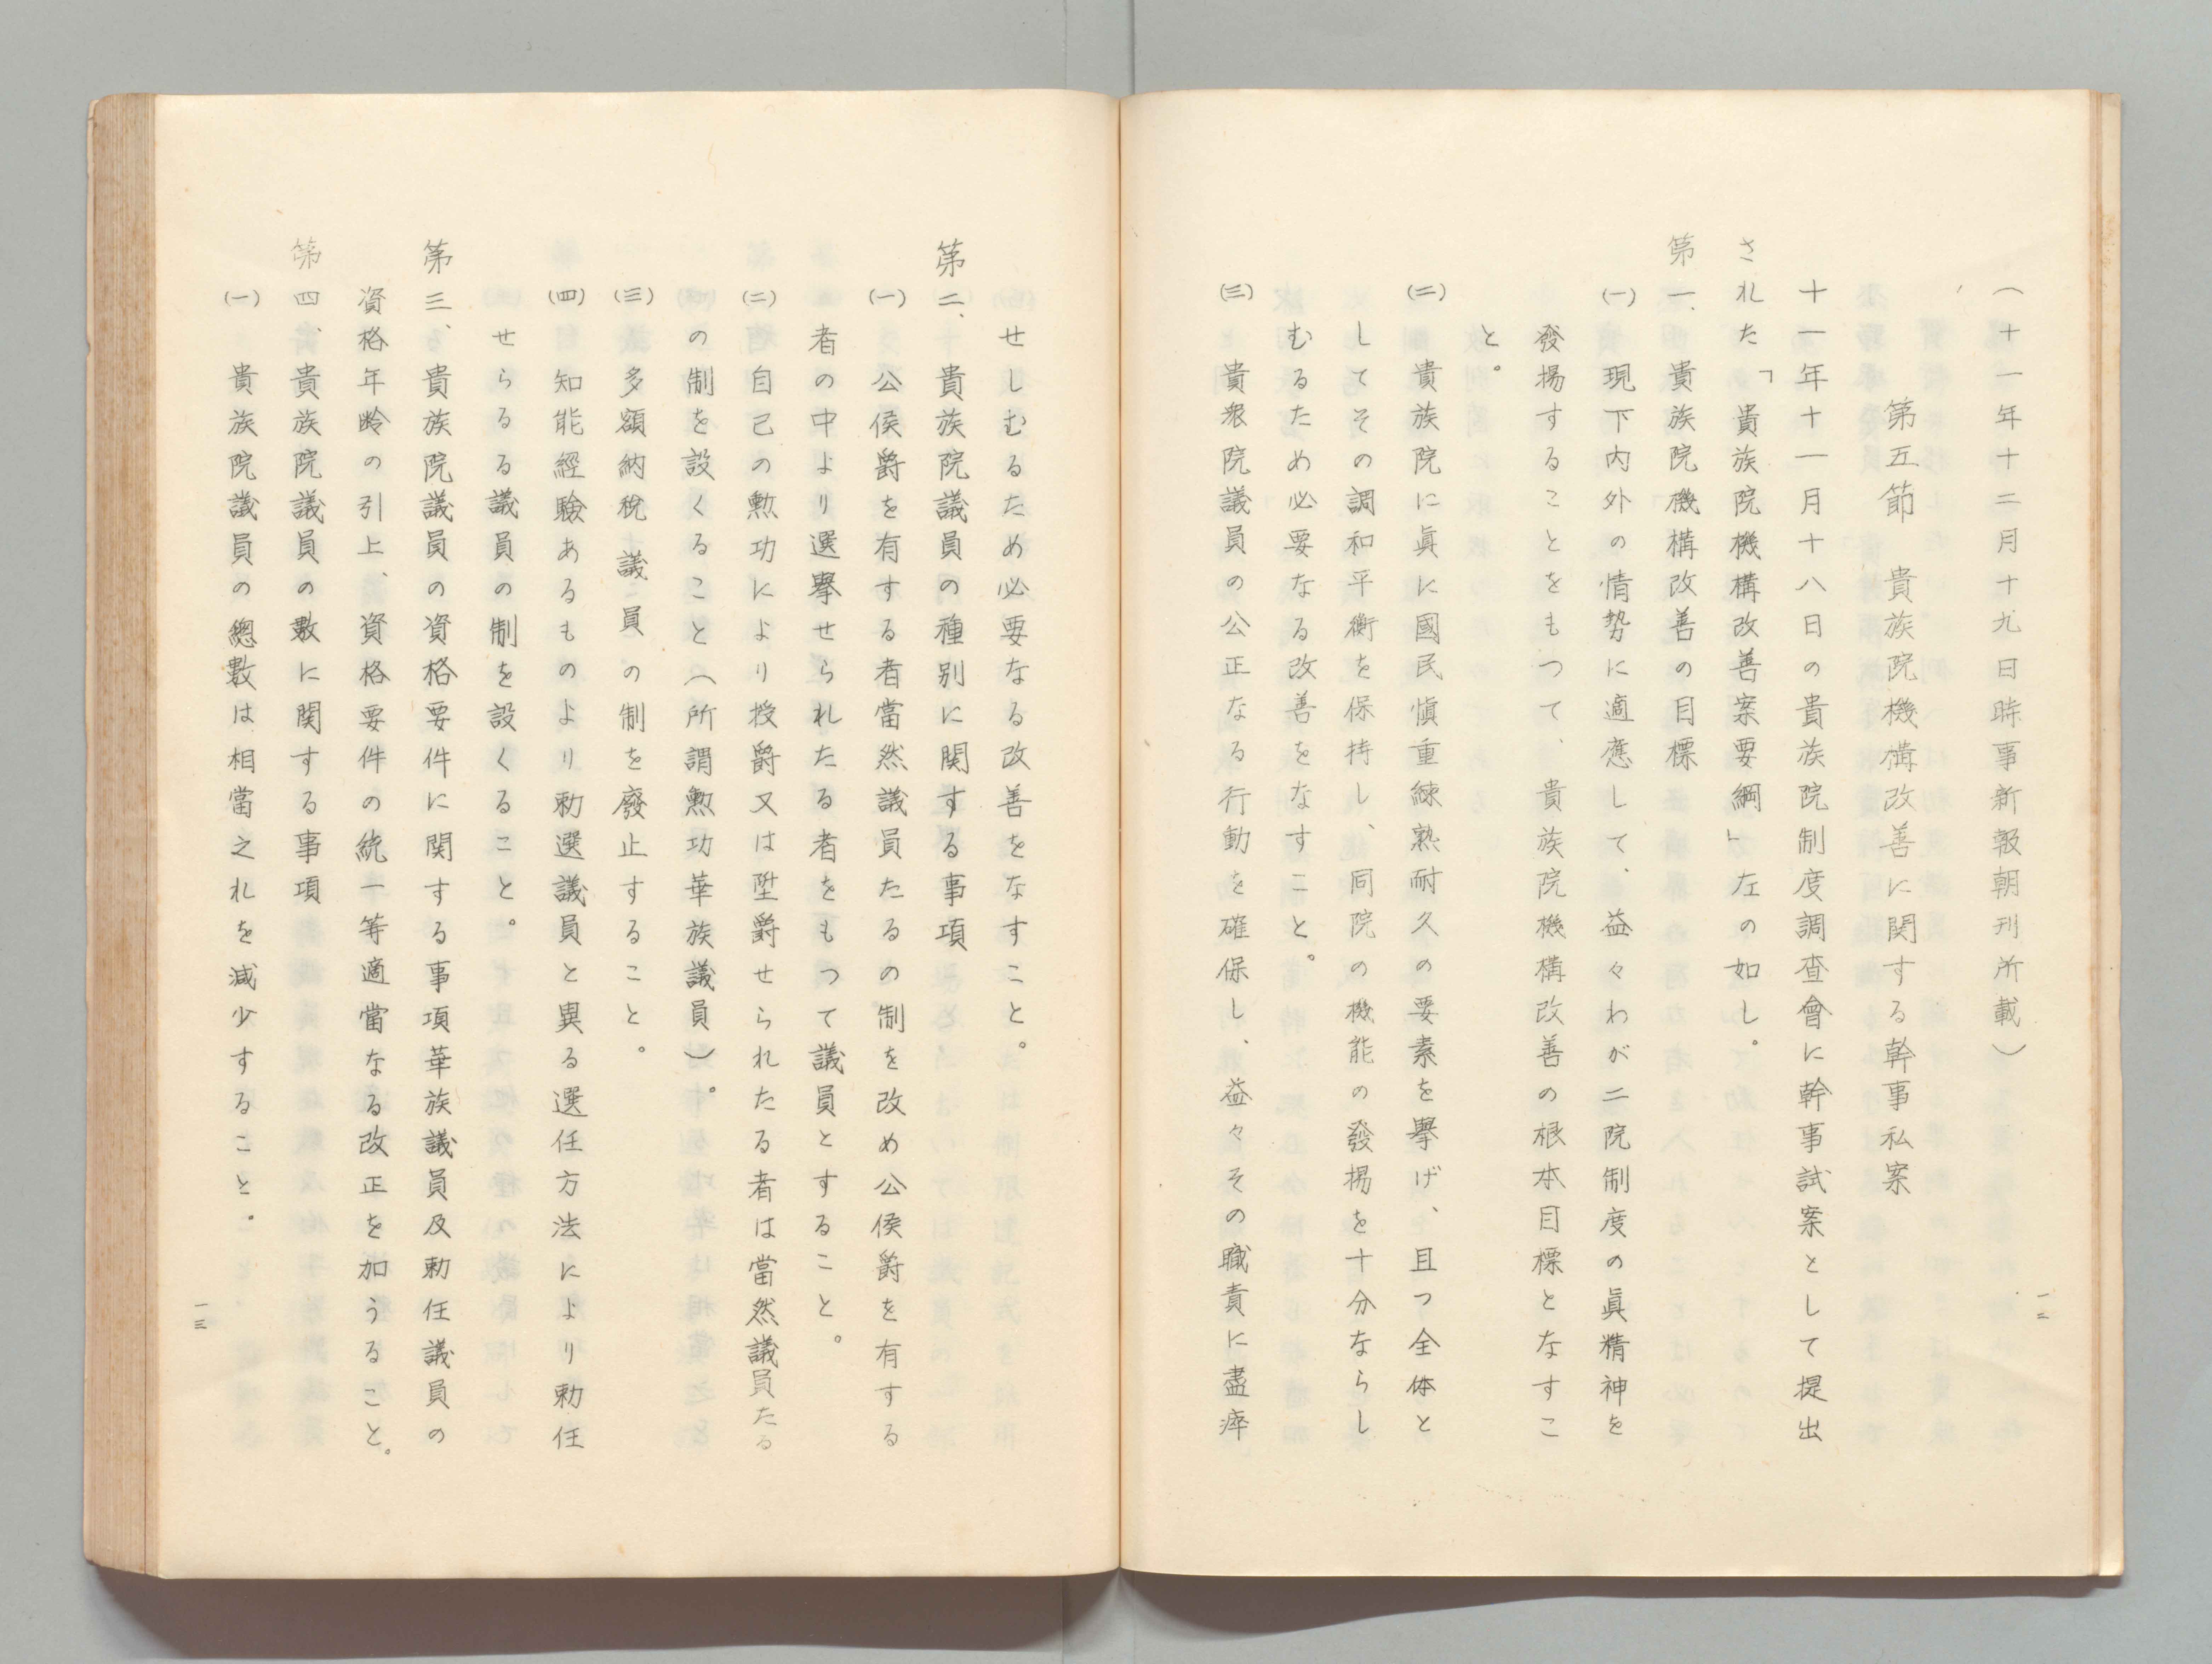 （十一年十二月十九日時事新報朝刊所載）
第五節　貴族院機構改善に関する幹事私案
十一年十一月十八日の貴族院制度調査會に幹事試案として提出
された「貴族院機構改善案要綱」左の如し。
第一、貴族院機構改善の目標
㈠　現下内外の情勢に適應して、益々わが二院制度の眞精神を
發揚することをもつて、貴族院機構改善の根本目標となすこ
と。
㈡　貴族院に眞に國民愼重練熟耐久の要素を擧げ、且つ全体と
してその調和平衡を保持し、同院の機能の發揚を十分ならし
むるため必要なる改善をなすこと。
㈢　貴衆院議員の公正なる行動を確保し、益々その職責に盡瘁
一二
せしむるため必要なる改善をなすこと。
第二、貴族院議員の種別に関する事項
㈠　公侯爵を有する者當然議員たるの制を改め公侯爵を有する
者の中より選擧せられたる者をもつて議員とすること。
㈡　自己の勲功により授爵又は陞爵せられたる者は當然議員たる
の制を設くること（所謂勲功華族議員）。
㈢　多額納税議員の制を廢止すること。
㈣　知能經驗あるものより勅選議員と異る選任方法により勅任
せらるる議員の制を設くること。
第三、貴族院議員の資格要件に関する事項華族議員及勅任議員の
資格年齢の引上、資格要件の統一等適當なる改正を加うること。
第四、貴族院議員の数に関する事項
㈠　貴族院議員の總數は相當之れを減少すること。
一三